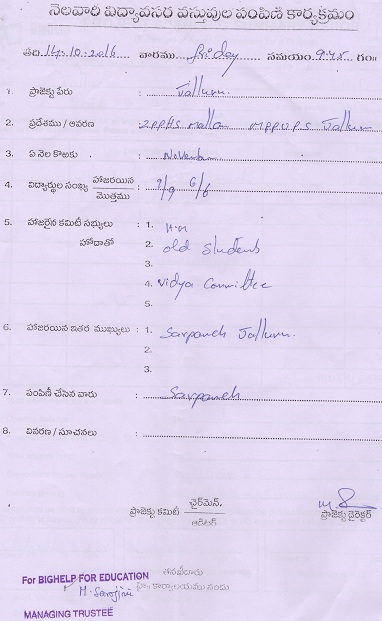 నెలవారి విద్యావసర వస్తువుల పంపిణి కార్యక్రమం
తేది 14-10-2016 వారము friday సమయం 9:45 గం॥
1. ప్రాజెక్టు పేరు : Jallura.
2. ప్రదేశము / ఆవరణ : ZPPHS Mallam MPPUPS Jallur
3. ఏ నెల కొఱకు : November
4. విద్యార్థుల సంఖ్య హాజరయిన / మొత్తము : 9/9 6/6
5. హాజరైన కమిటీ సభ్యులు : 1. H.M
హోదాతో 2. old students
3.
4. Vidya Committee
5.
6. హాజరయిన ఇతర ముఖ్యులు : 1. Sarpanch Jalluru.
2.
3.
7. పంపిణీ చేసిన వారు : Sarpanch
8. వివరణ / సూచనలు :
ప్రాజెక్టు కమిటీ చైర్‌మెన్. / ఆడిటర్ ప్రాజెక్టు డైరెక్టర్
For BIGHELP FOR EDUCATION
M. Sarojini కార్యాలయము నందు
MANAGING TRUSTEE